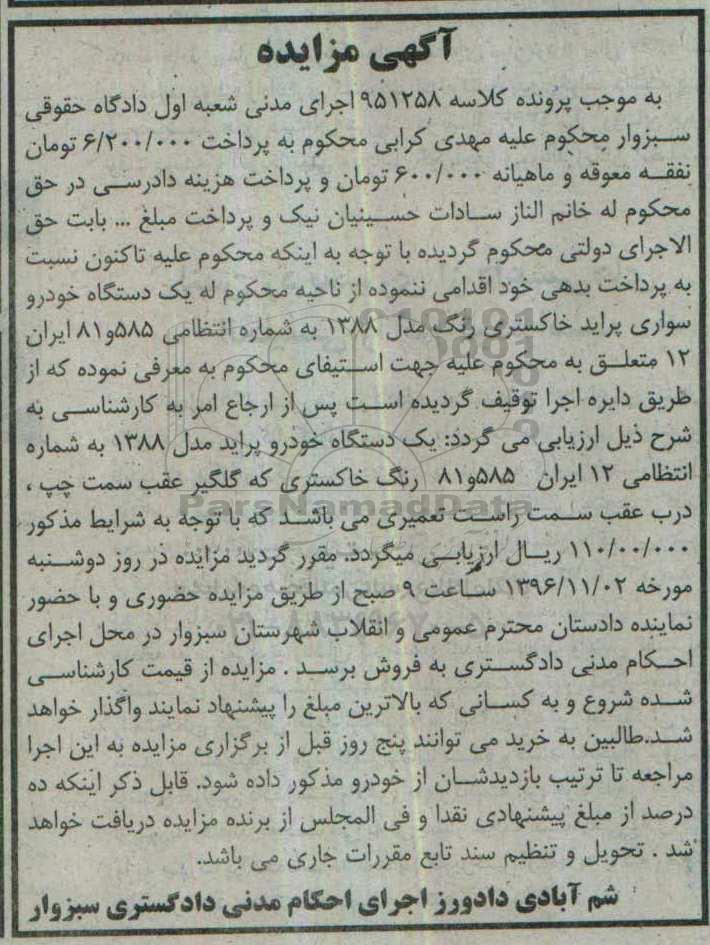 آگهی مزایده
به موجب پرونده کلاسه ۹۵۱۲۵۸ اجرای مدنی شعبه اول دادگاه حقوقی
سبزوار محکوم علیه مهدی کرابی محکوم به پرداخت ۶/۲۰۰/۰۰۰ تومان
نفقه معوقه و ماهیانه ۶۰۰/۰۰۰ تومان و پرداخت هزینه دادرسی در حق
محکوم له خانم الناز سادات حسینیان نیک و پرداخت مبلغ ... بابت حق
الاجرای دولتی محکوم گردیده با توجه به اینکه محکوم علیه تاکنون نسبت
به پرداخت بدهی خود اقدامی ننموده از ناحیه محکوم له یک دستگاه خودرو
سواری پراید خاکستری رنگ مدل ۱۳۸۸ به شماره انتظامی ۵۸۵و۸۱ ایران
۱۲ متعلق به محکوم علیه جهت استیفای محکوم به معرفی نموده که از
طریق دایره اجرا توقیف گردیده است پس از ارجاع امر به کارشناسی به
شرح ذیل ارزیابی می گردد: یک دستگاه خودرو پراید مدل ۱۳۸۸ به شماره
انتظامی ۱۲ ایران ۵۸۵و۸۱ رنگ خاکستری که گلگیر عقب سمت چپ ،
درب عقب سمت راست تعمیری می باشد که با توجه به شرایط مذکور
۱۱۰/۰۰/۰۰۰ ریال ارزیابی میگردد. مقرر گردید مزایده در روز دوشنبه
مورخه ۱۳۹۶/۱۱/۰۲ ساعت ۹ صبح از طریق مزایده حضوری و با حضور
نماینده دادستان محترم عمومی و انقلاب شهرستان سبزوار در محل اجرای
احکام مدنی دادگستری به فروش برسد . مزایده از قیمت کارشناسی
شده شروع و به کسانی که بالاترین مبلغ را پیشنهاد نمایند واگذار خواهد
شد.طالبین به خرید می توانند پنج روز قبل از برگزاری مزایده به این اجرا
مراجعه تا ترتیب بازدیدشان از خودرو مذکور داده شود. قابل ذکر اینکه ده
درصد از مبلغ پیشنهادی نقدا و فی المجلس از برنده مزایده دریافت خواهد
شد . تحویل و تنظیم سند تابع مقررات جاری می باشد.
شم آبادی دادورز اجرای احکام مدنی دادگستری سبزوار
ParsNamadData